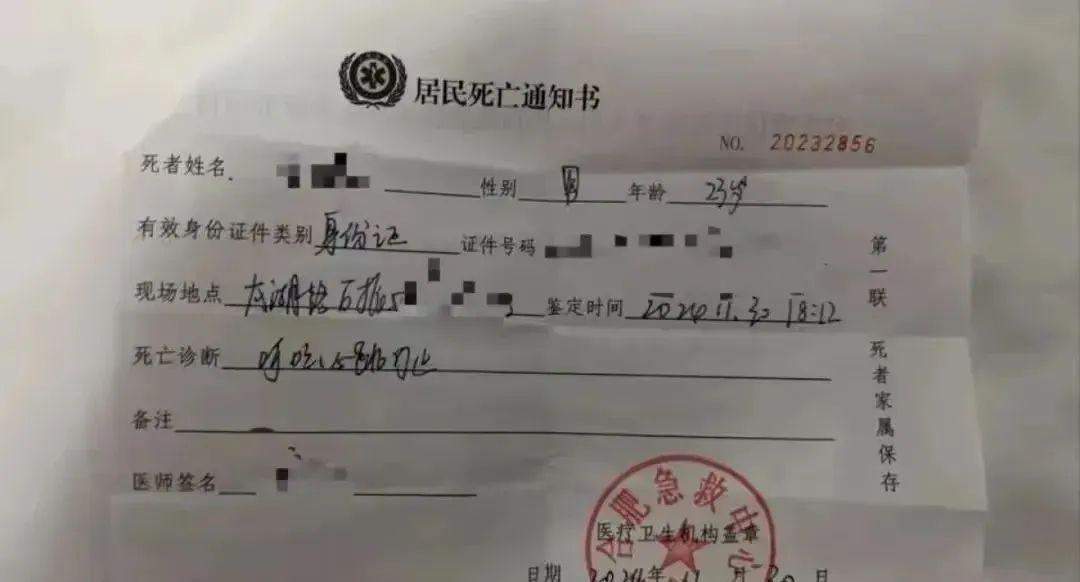 居民死亡通知书
NO. 20232856
死者姓名 性别 男 年龄 23岁
有效身份证件类别 身份证 证件号码
现场地点 鉴定时间 2024.11.30 18:12
死亡诊断 呼吸心跳停止
备注
医师签名
第一联 死者家属保存
合肥急救中心
医疗卫生机构盖章
日期 2024年 11月 30日